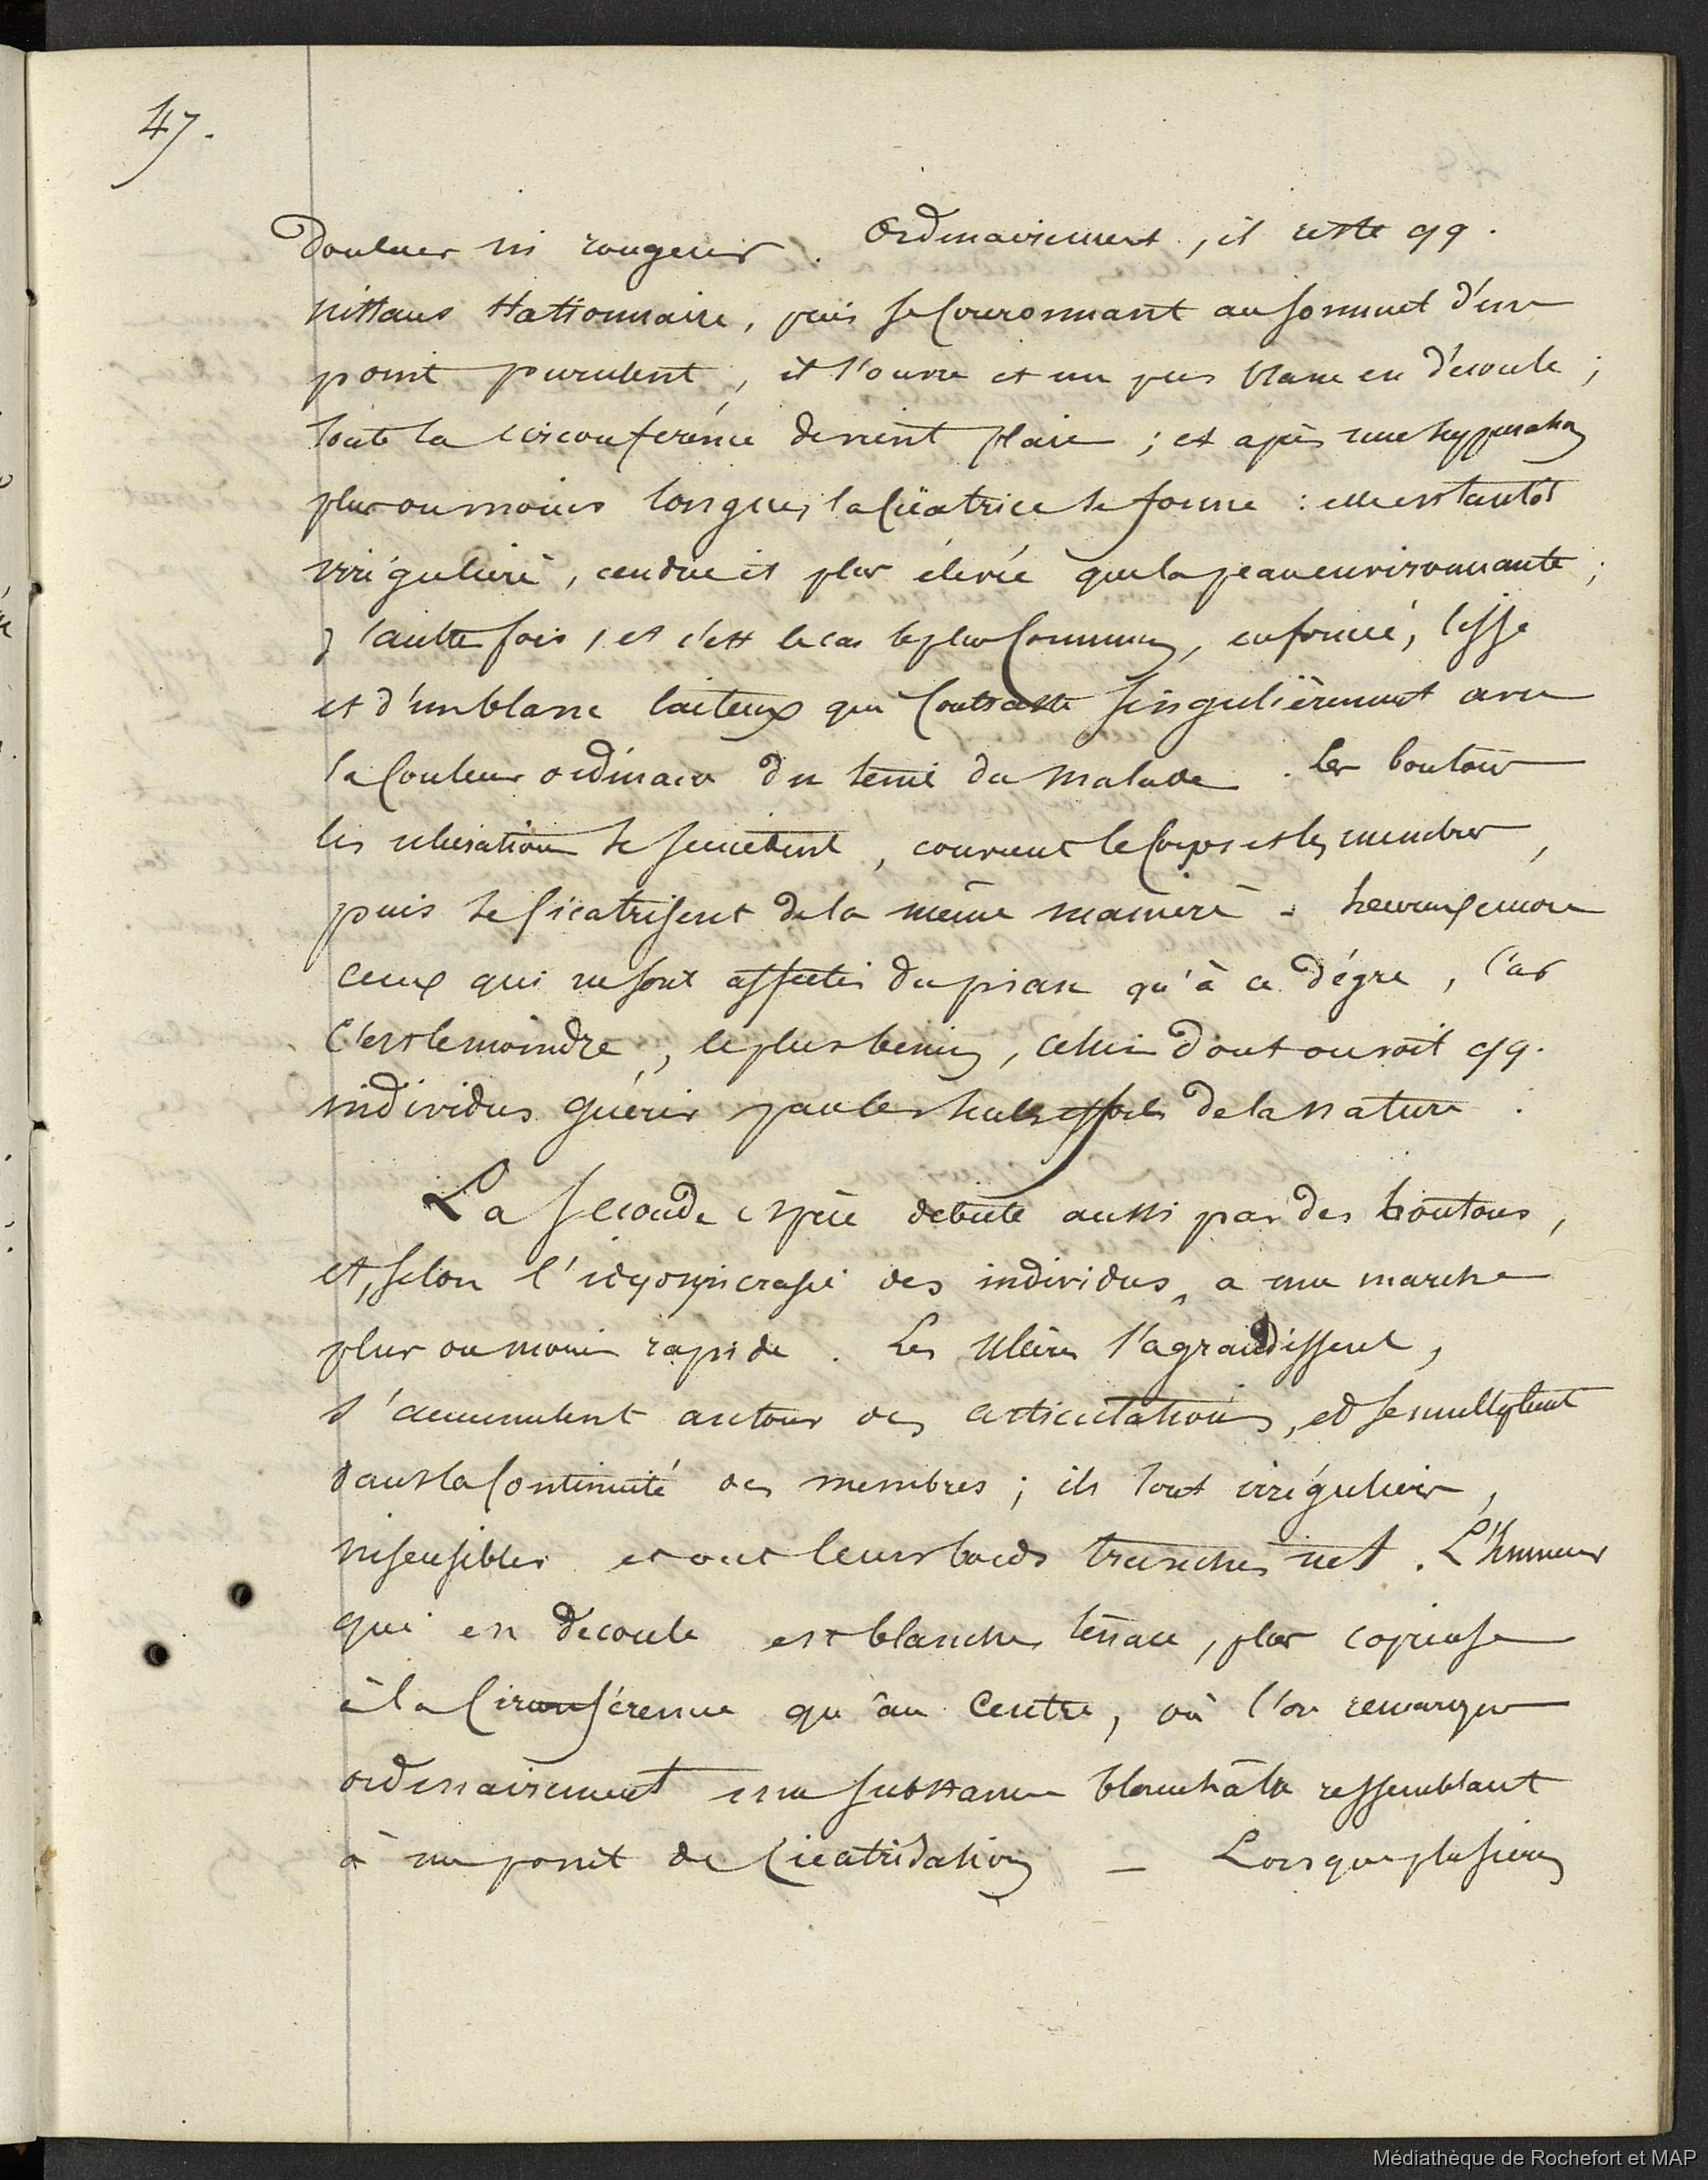 47.
Douleur ni rougeur. Ordinairement, il reste qq.
instans stationnaire, puis se couronnant au sommet d'un
point purulent, il s'ouvre et un pus blanc en découle ;
toute la circonférence devient plaie ; et après une suppuration
plus ou moins longue, la cicatrice se forme : elle est tantôt
irrégulière, cendrée et plus élevée que la peau environnante ;
d'autre fois, et c'est le cas le plus commun, enfoncée, lisse
et d'un blanc laiteux qui contraste singulièrement avec
la couleur ordinaire du teint du malade. Les boutons
les ulcérations se succèdent, couvrent le corps et les membres,
puis se cicatrisent de la même manière - heureux encore
ceux qui ne sont affectés du pian qu'à ce dégré, car
c'est le moindre, le plus bénin, celui dont on voit qq.
individus guérir par les seuls efforts de la nature.
La seconde espèce débute aussi par des boutons,
et, selon l'idyosyncrasie des individus, a une marche
plus ou moins rapide. Les ulcères s'agrandissent,
s'accumulent autour des articulations, et se multiplient
dans la continuité des membres ; ils sont irréguliers,
insensibles et ont leurs bords tranchés net. L'humeur
qui en découle est blanche, tenace, plus copieuse
à la circonférence qu'au centre, où l'on remarque
ordinairement une substance blanchâtre ressemblant
à un point de cicatrisation — Lorsque plusieurs
Médiathèque de Rochefort et MAP